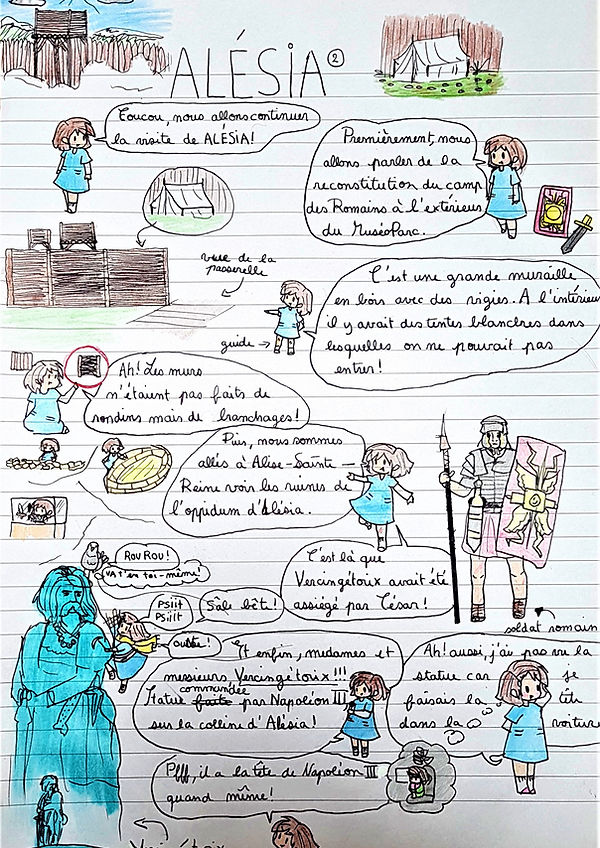 ALÉSIA ②
Coucou, nous allons continuer
la visite de ALÉSIA!
Premièrement, nous
allons parler de la
reconstitution du camp
des Romains à l'extérieur
du MuséoParc.
vue de la
passerelle
C'est une grande muraille
en bois avec des vigies. A l'intérieur
il y avait des tentes blanches dans
lesquelles on ne pouvait pas
entrer!
guide →
Ah! Les murs
n'étaient pas faits de
rondins mais de branchages!
Puis, nous sommes
allés à Alise-Sainte-
Reine voir les ruines de
l'oppidum d'Alésia.
C'est là que
Vercingétoix avait été
assiégé par César!
soldat romain
ROU ROU!
VA t'en toi-même!
PSiit
PSiit
Sâle bête!
ouste!
Et enfin, mudames et
messieurs Vercingétoix!!!
Statue faite commandée par Napoléon III
sur la colline d'Alésia!
Ah! aussi, j'ai pas vu la
statue car je
faisais la tête
dans la voiture
Pfff, il a la tête de Napoléon III
quand même!